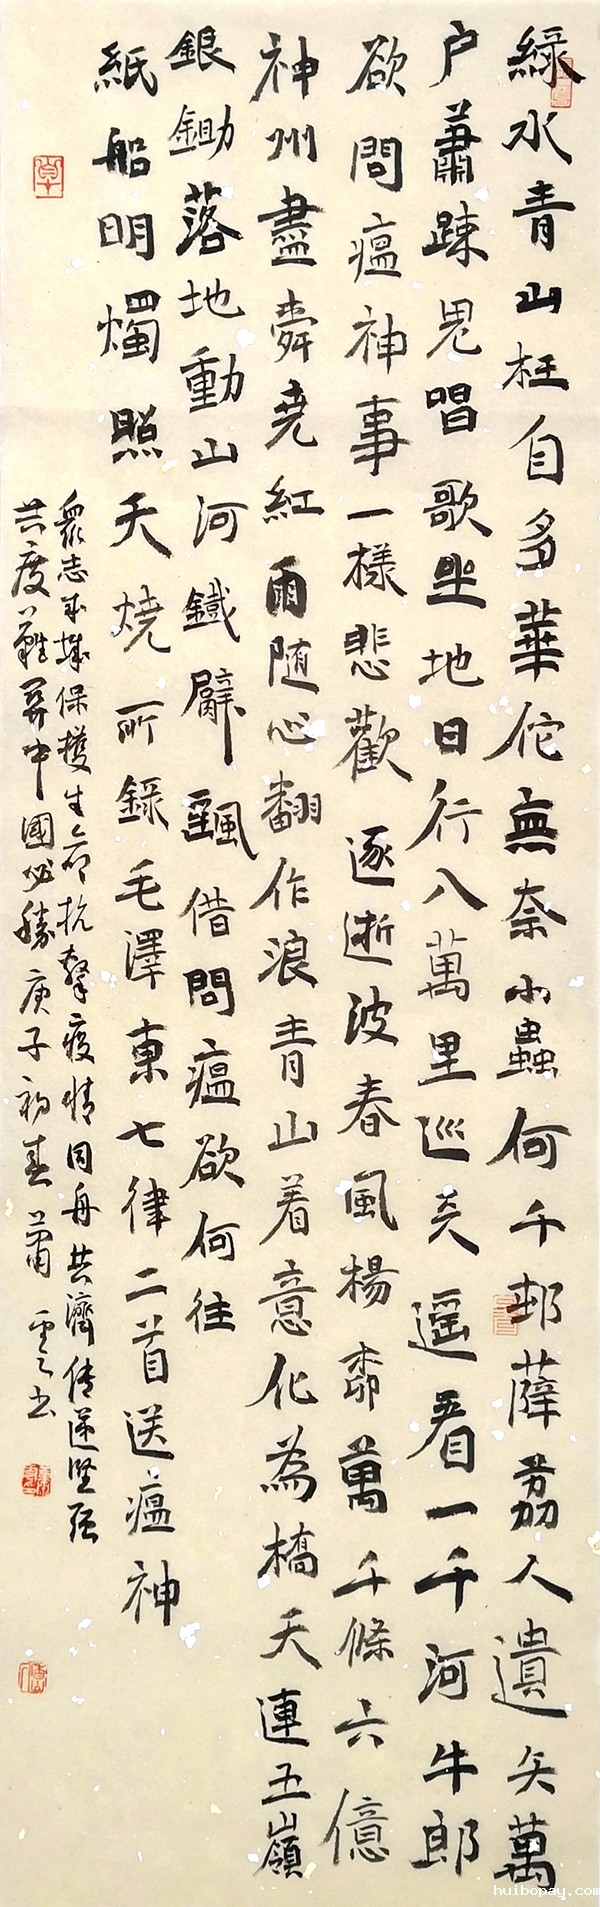 綠水青山枉自多華佗無奈小蟲何千邨薜荔人遺矢萬
户蕭踈鬼唱歌坐地日行八萬里巡天遥看一千河牛郎
欲問瘟神事一樣悲歡逐逝波春風楊柳萬千條六億
神州盡舜堯紅雨随心翻作浪青山着意化為橋天連五嶺
銀鋤落地動山河鐵臂颻借問瘟欲何往
紙船明燭照天燒所録毛澤東七律二首送瘟神
眾志成城保護生命抗擊疫情同舟共濟傳遞堅强
共度難關中國必勝庚子初春蕭雲书
huibopay.com